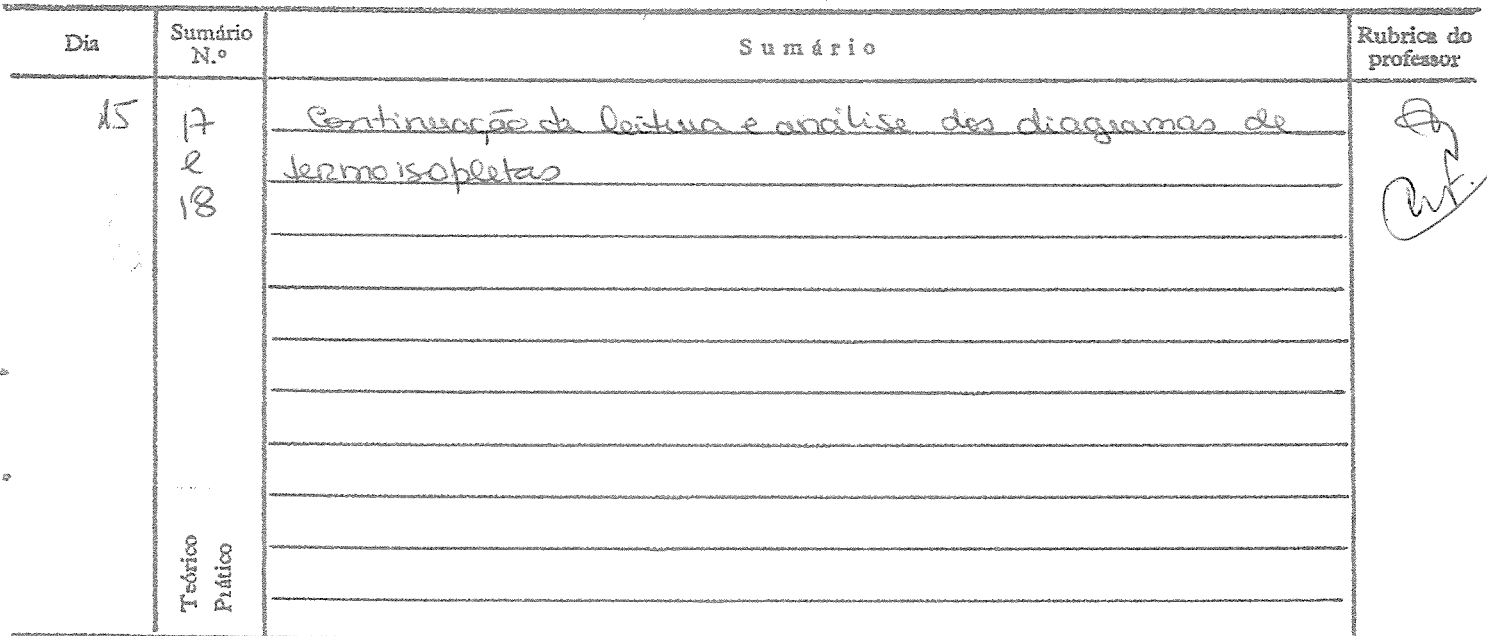 Dia Sumário N.º Sumário Rubrica do professor
15 17 Continuação da leitura e análise dos diagramas de
e termoisopletas
18
Teórico
Prático